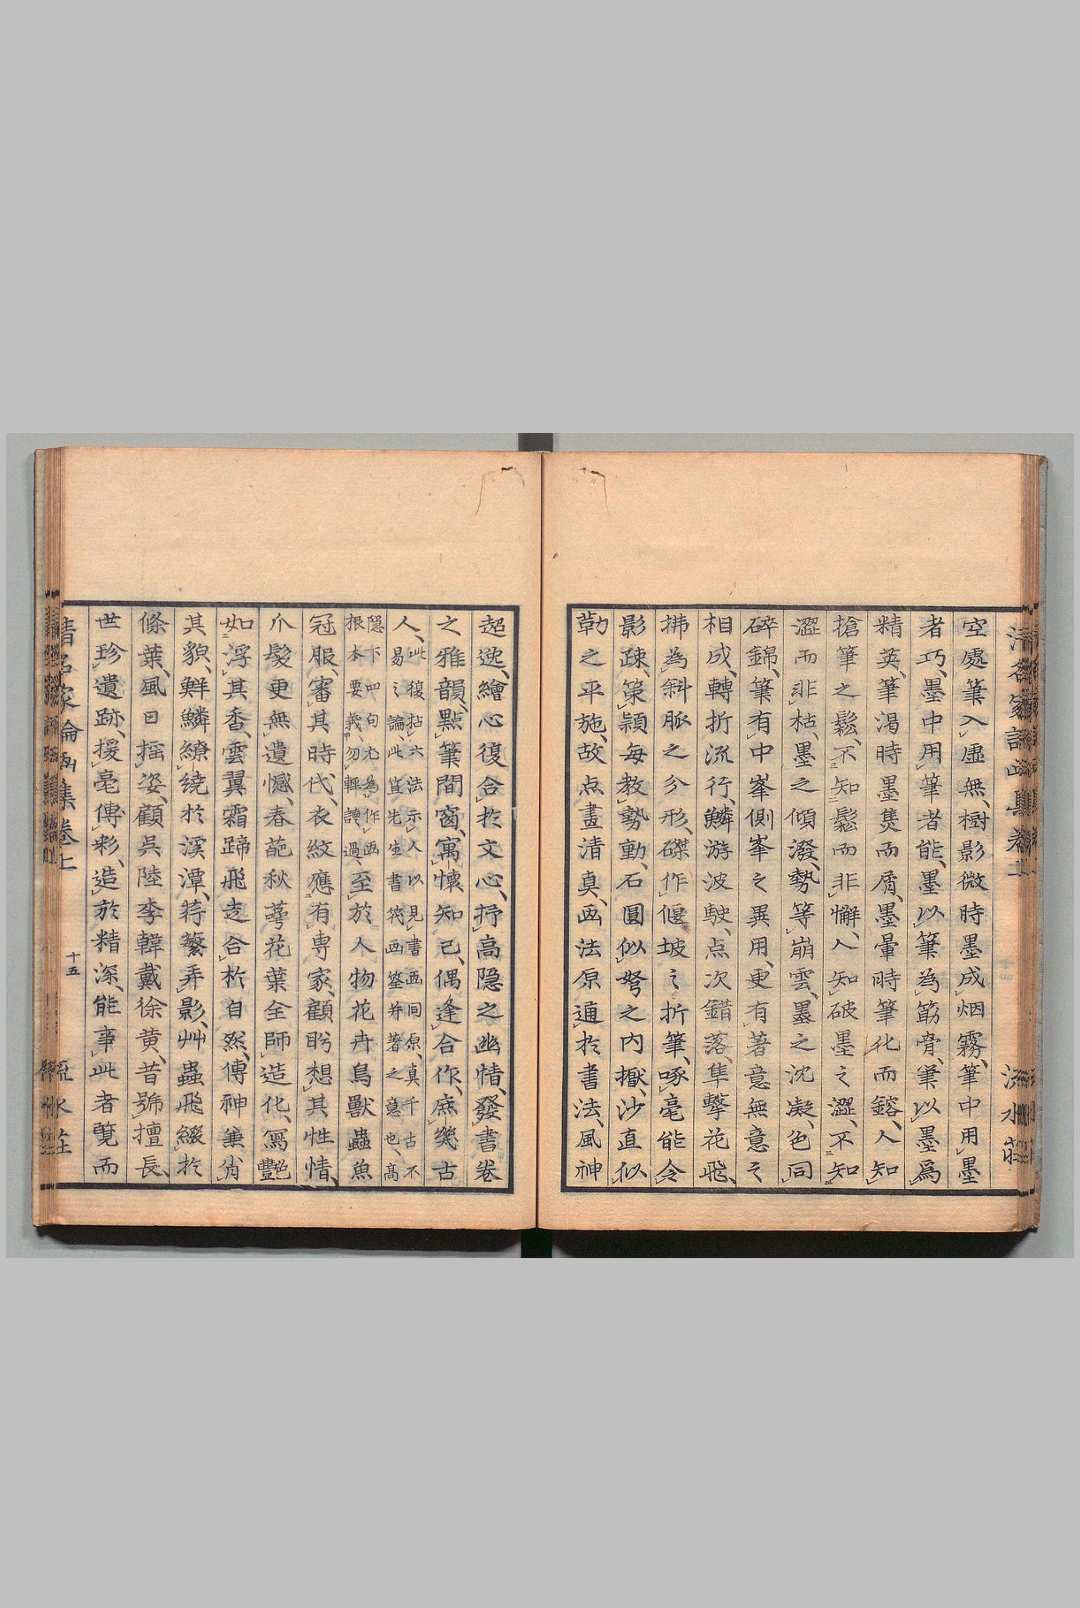 空處筆入虛無、樹影微時墨成烟霧、筆中用墨
者巧、墨中用筆者能、墨以筆為筋骨、筆以墨爲
精英、筆渴時墨焦而屑、墨暈時筆化而鎔、人知
搶筆之鬆、不知鬆而非懈、人知破墨之澀、不知
澀而非枯、墨之傾潑、勢等崩雲、墨之沈凝、色同
碎錦、筆有中峯側峯之異用、更有著意無意之
相成、轉折流行、鱗游波駛、点次錯落、隼擊花飛、
拂為斜脈之分形、磔作偃坡之折筆、啄毫能令
影疎、策頴每教勢動、石圓似弩之內擫、沙直似
勒之平施、故点畫清真、画法原通於書法、風神
超逸、繪心復合於文心、抒高隐之幽情、發書卷
之雅韻、點筆閒窗、寓懷知己、偶逢合作、庶幾古
人、此復拈六法示人以見書画同原真千古不
易之論此笪先生書筏画筌并著之意也、高
隠下四句尤為作画
根本要義勿輕讀過、至於人物花卉鳥獸蟲魚
冠服、審其時代、衣紋應有專家、顧盼想其性情、
爪髮更無遺憾、春葩秋蕚花葉全師造化、寫艷
如浮其香、雲翼霜蹄飛走合於自然、傳神兼肖
其貌、鮮鱗繚繞於溪潭、荇蘩弄影、艸蟲飛綴於
條葉、風日揺姿、顧吳陸李韓戴徐黄、昔號擅長、
世珍遺跡、援毫傳彩、造於精深、能事此者覽而
清名家論画集卷上
十五